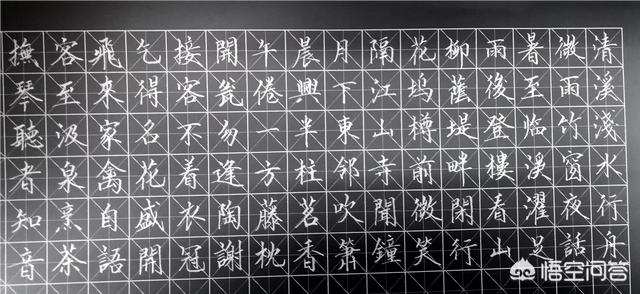 清溪淺水行舟
微雨竹窗夜話
暑至临溪濯足
雨後登樓看山
柳蔭堤畔閑行
花塢樽前微笑
隔江山寺聞鐘
月下東邻吹簫
晨興半柱茗香
午倦一方藤枕
開瓮勿逢陶謝
接客不着衣冠
乞得名花盛開
飛來家禽自語
客至汲泉烹茶
撫琴聽者知音
悟空问答